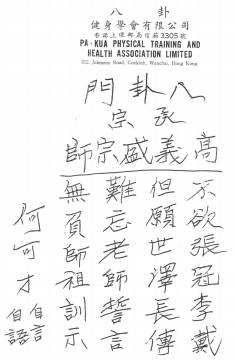 八卦
健身學會有限公司
香港上環郵局信箱3305號
PA-KUA PHYSICAL TRAINING AND
HEALTH ASSOCIATION LIMITED
Johnston Road, Wanchai, Hong Kong
八卦門
承宗
高義盛宗師
不欲張冠李戴
但願世澤長傳
難忘老師誓言
無負師祖訓示
何可才
自言
自語